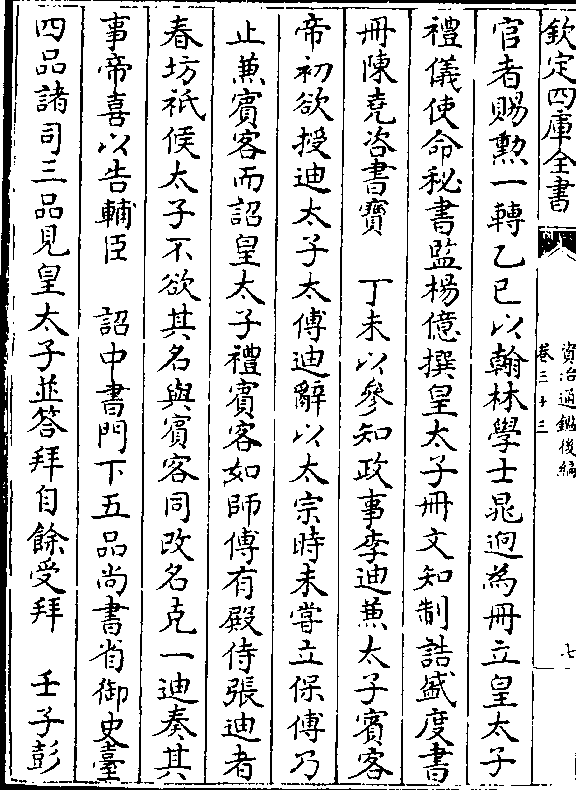 欽定四庫全書
資治通鑑後編
卷三十三
七
官者賜勲一轉乙巳以翰林學士晁迥為冊立皇太子
禮儀使命秘書監楊億撰皇太子冊文知制誥盛度書
冊陳堯咨書寶　丁未以參知政事李迪兼太子賓客
帝初欲授迪太子太傅迪辭以太宗時未嘗立保傅乃
止兼賓客而詔皇太子禮賓客如師傅有殿侍張迪者
春坊祗候太子不欲其名與賓客同改名克一迪奏其
事帝喜以告輔臣　詔中書門下五品尚書省御史臺
四品諸司三品見皇太子並答拜自餘受拜　壬子彭